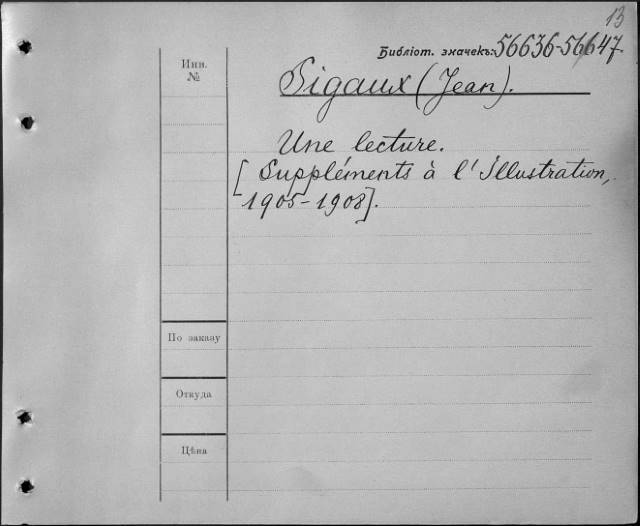 13
Библіот. значекъ: 56636-56647.
Инв.
№
Sigaux (Jean).
Une lecture.
[Suppléments à l'Illustration,
1905-1908].
По заказу
Откуда
Цѣна